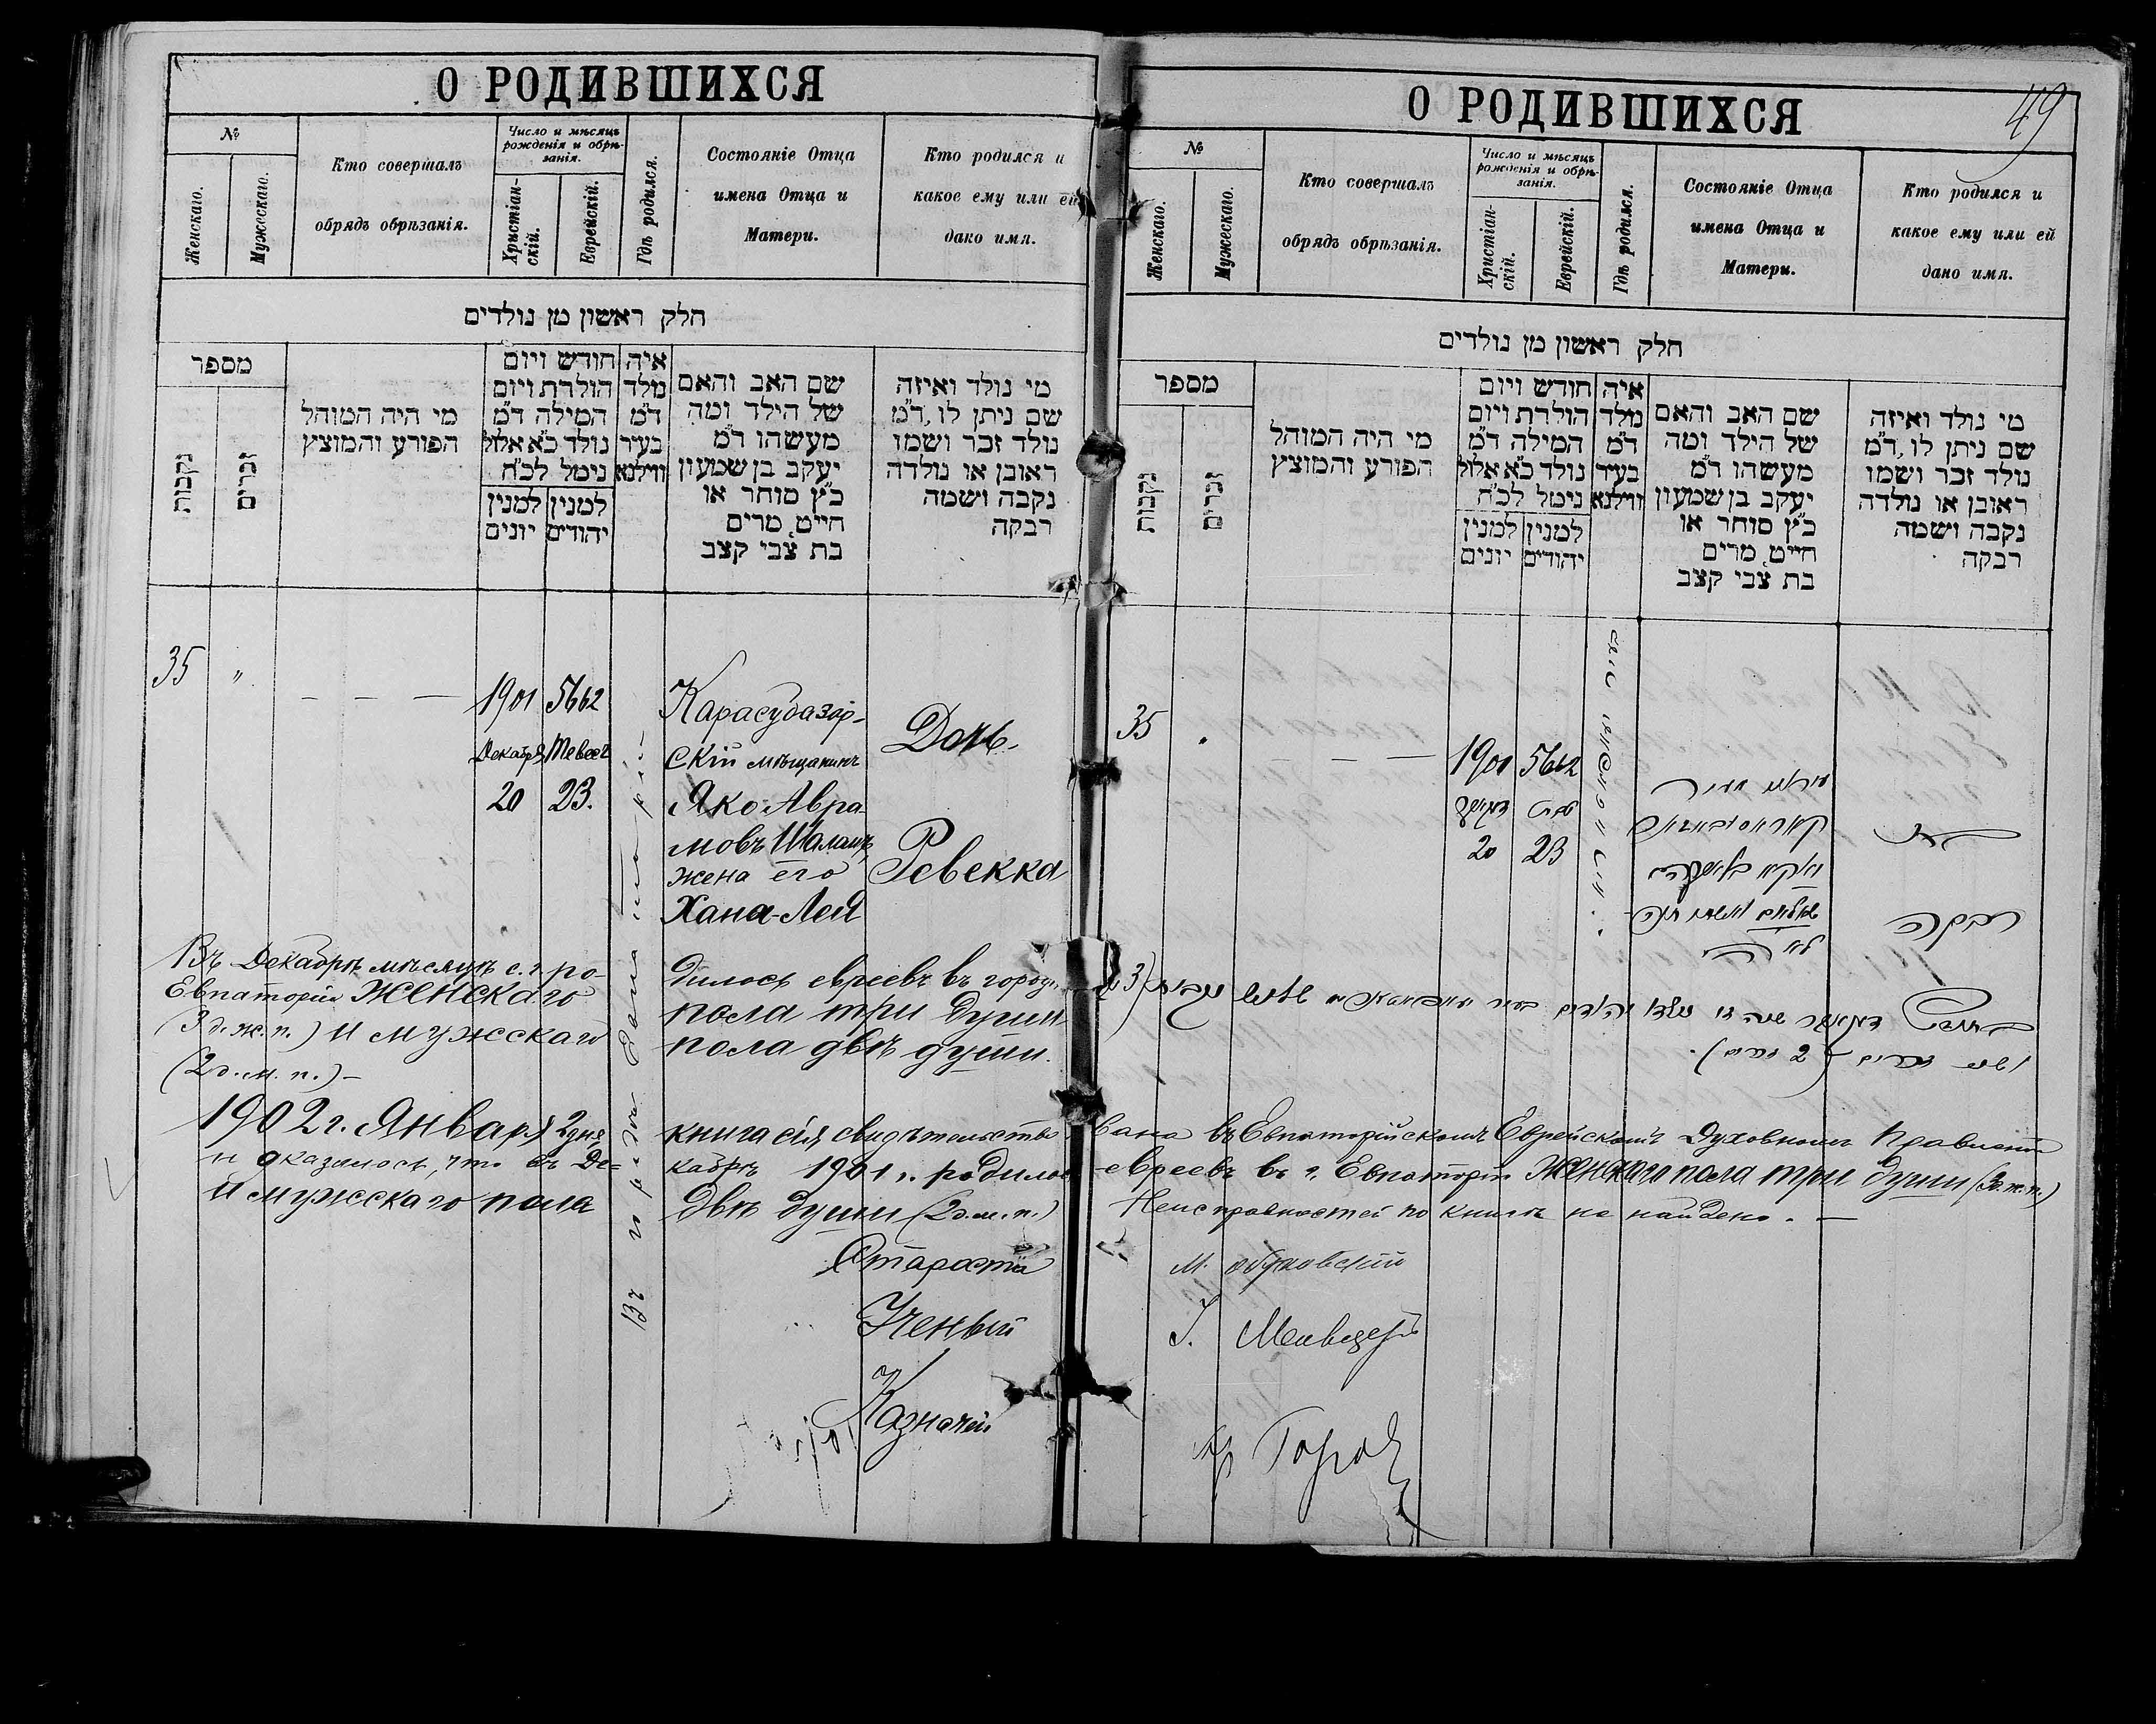 О РОДИВШИХСЯ
№
Женскаго.
Мужескаго.
Кто совершалъ
обрядъ обрѣзанія.
Число и мѣсяцъ
рожденія и обрѣ-
занія.
Христіан-
скій.
Еврейскій.
Гдѣ родился.
Состояніе Отца
имена Отца и
Матери.
Кто родился и
какое ему или ей
дако имя.
חלק ראשון מן נולדים
מספר
נקבות
זכרים
מי היה המוהל
הפורע והמוצץ
חודש ויום
הולדת ויום
המילה ד״מ
נולד כ״א אלול
נימל לכ״ח
למנין יהודים
למנין יונים
איה
נולד
ד״מ
בעיר
ווילנא
שם האב והאם
של הילד ומה
מעשהו ד״מ
יעקב בן שמעון
כ״ץ סוחר או
חייט, מרים
בת צבי קצב
מי נולד ואיזה
שם ניתן לו, ד״מ
נולד זכר ושמו
ראובן או נולדה
נקבה ושמה
רבקה
35 "
1901 5662
Декабря Тевесъ
20 23.
Карасубазар-
скій мѣщанинъ
Яко Авра-
мовъ
жена его
Хана-Лея
Дочь
Ревекка
Въ Декабрѣ мѣсяцѣ с. г. ро-
дилось евреевъ въ городѣ
Евпаторіи женскаго
пола три души
(3 д. ж. п.) и мужскаго
пола двѣ души.
(2 д. м. п.) –
1902 г. Января 2 дня
книга сія свидѣтельство-
и оказалось, что въ Де-
кабрѣ 1901 г. родилось
и мужскаго пола
двѣ души (2 д. м. п.)
Староста
Ученый
Казначей
О РОДИВШИХСЯ
49
№
Женскаго.
Мужескаго.
Кто совершалъ
обрядъ обрѣзанія.
Число и мѣсяцъ
рожденія и обрѣ-
занія.
Христіан-
скій.
Еврейскій.
Гдѣ родился.
Состояніе Отца
имена Отца и
Матери.
Кто родился и
какое ему или ей
дано имя.
חלק ראשון מן נולדים
מספר
נקבות
זכרים
מי היה המוהל
הפורע והמוצץ
חודש ויום
הולדת ויום
המילה ד״מ
נולד כ״א אלול
נימל לכ״ח
למנין יהודים
למנין יונים
איה
נולד
ד״מ
בעיר
ווילנא
שם האב והאם
של הילד ומה
מעשהו ד״מ
יעקב בן שמעון
כ״ץ סוחר או
חייט, מרים
בת צבי קצב
מי נולד ואיזה
שם ניתן לו, ד״מ
נולד זכר ושמו
ראובן או נולדה
נקבה ושמה
רבקה
35
1901 5662
טבת
20 23
בת
רבקה
вана въ Евпаторійскомъ Еврейскомъ Духовномъ Правленіи
евреевъ въ г. Евпаторіи женскаго пола три души (3 д. ж. п.)
Неисправностей по книгѣ не найдено. –